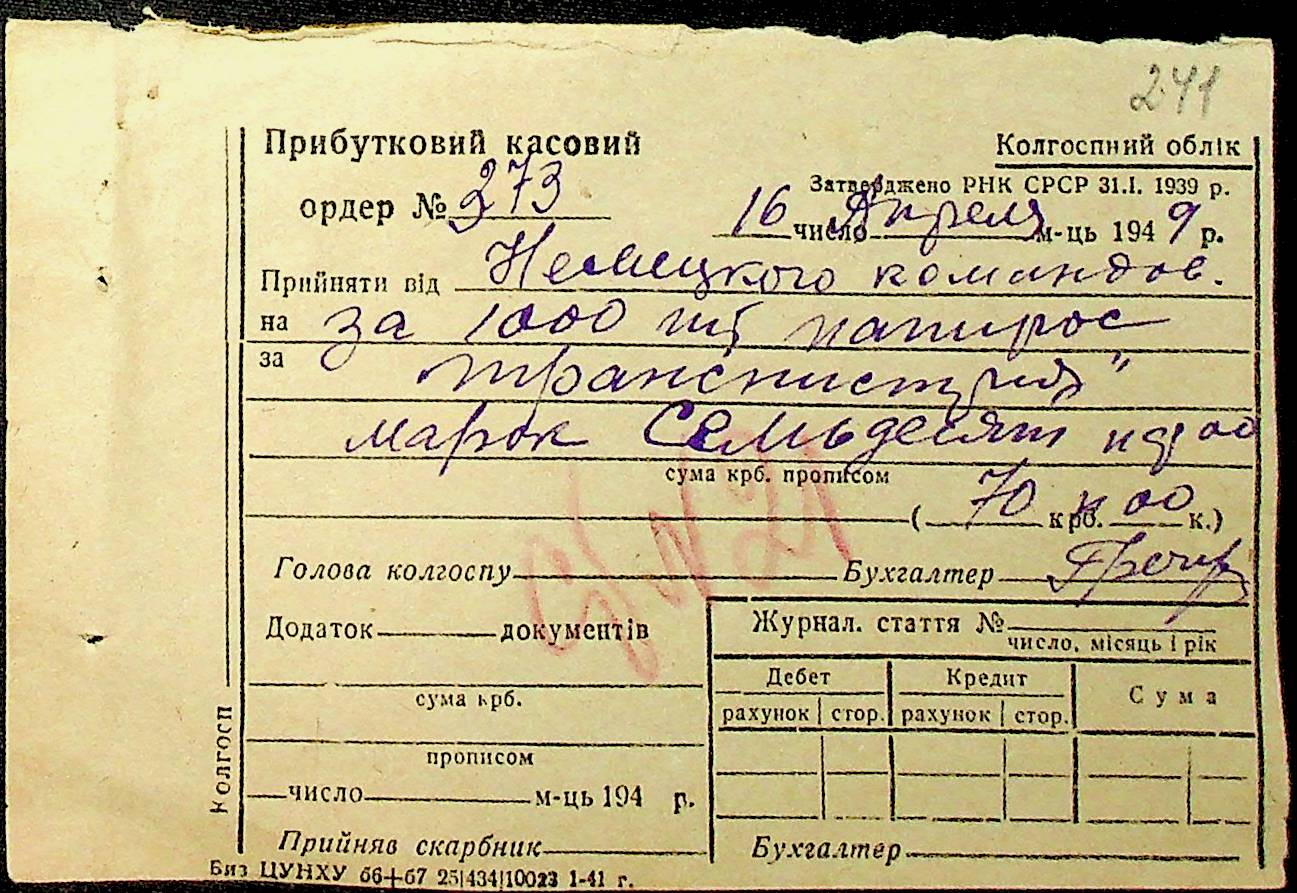 241
Прибутковий касовий
ордер № 273
Колгоспний облік
Затверджено РНК СРСР 31.I. 1939 р.
16 число Апреля м-ць 1949 р.
Прийняти від Немецкого командов.
на за 1000 шт папирос
за
марок Семьдесят 00
сума крб. прописом
( 70 крб. 00 к.)
Голова колгоспу Бухгалтер
Додаток документів
Журнал. стаття №
число, місяць і рік
сума крб.
прописом
число м-ць 194 р.
Прийняв скарбник
Дебет Кредит Сума
рахунок стор. рахунок стор.
Бухгалтер
Колгосп
Биз ЦУНХУ 66+67 25|434|10023 1-41 г.